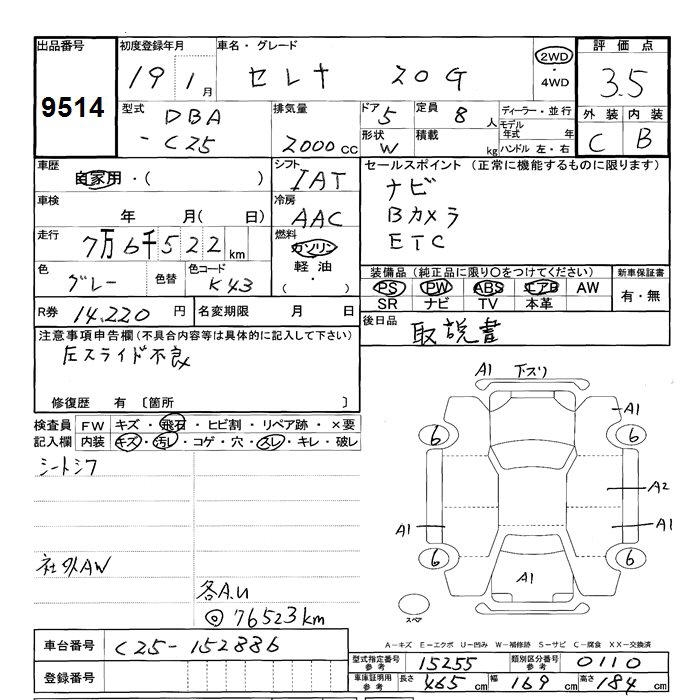 出品番号 初度登録年月 車名・グレード 2WD・4WD 評価点
9514 19 1月 セレナ 20G 3.5
型式 DBA-C25 排気量 2000cc ドア 5 定員 8人 ディーラー・並行
形状 W 積載 kg モデル年式 年 ハンドル 左・右
外装 内装
C B
車歴 自家用・( ) シフト IAT セールスポイント (正常に機能するものに限ります)
車検 年 月(日) 冷房 AAC ナビ
Bカメラ
ETC
走行 7万6千522km 燃料 ガソリン・軽油・( )
色 グレー 色替 色コード K43
装備品 (純正品に限り○をつけてください) 新車保証書
PS PW ABS エアB AW 有・無
SR ナビ TV 本革
R券 14,220円 名変期限 月 日 後日品 取説書
注意事項申告欄(不具合内容等は具体的に記入して下さい)
左スライド不良
修復歴 有 〔箇所 〕
検査員記入欄 FW キズ・飛石・ヒビ割・リペア跡・×要
内装 キズ・汚レ・コゲ・穴・スレ・キレ・破レ
シートシワ
社外AW
各A.U
◎76523km
A1 下スリ
A1
6 6
A2
A1 A1
6 6
A1
スペア
A-キズ E-エクボ U-凹み W-補修跡 S-サビ C-腐食 XX-交換済
車台番号 C25-152886
登録番号
型式指定番号参考 15255 類別区分番号参考 0110
車庫証明用参考 長さ 465cm 幅 169cm 高さ 184cm